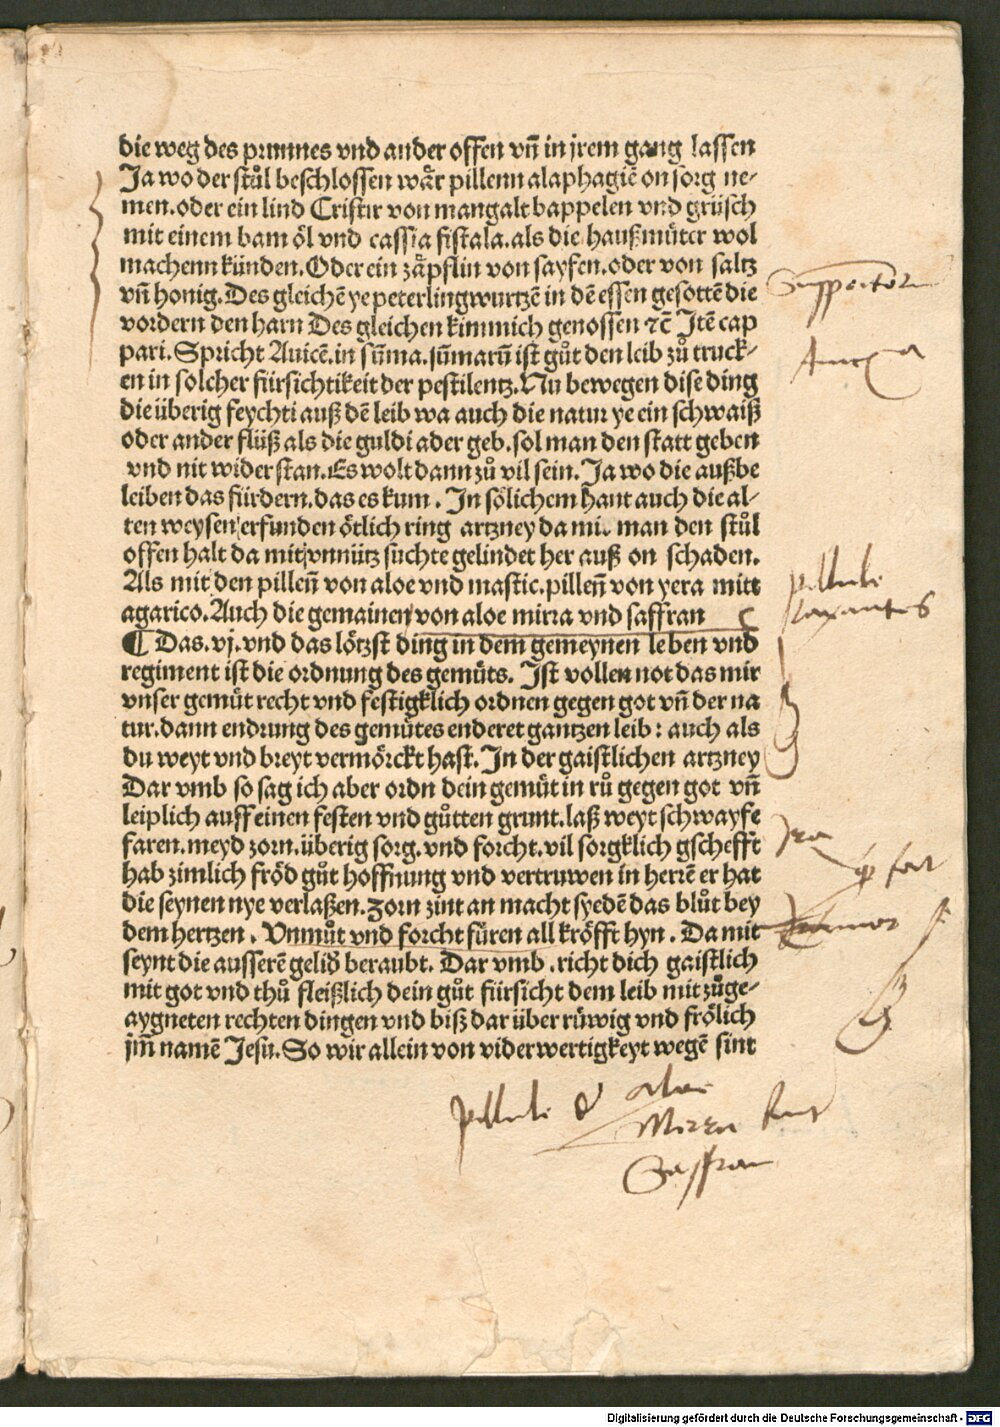 die weg des prunnes vnd ander offen vn̄ in jrem gang lassen
Ja wo der stůl beschlossen wår pillenn alaphagiē on sorg ne-
men. oder ein lind Cristir von mangalt bappelen vnd grüsch
mit einem bam öl vnd cassia fistala. als die haußmůter wol
machenn künden. Oder ein zåpflin von sayfen. oder von saltz
vn̄ honig. Des gleichē ye peterlingwurtzē in dē essen gesottē die
vordern den harn Des gleichen kimmich genossen ⁊c̄ Jtē cap
pari. Spricht Auicē. in sūma. sūmarū ist gůt den leib zů truck-
en in solcher fürsichtikeit der pestilentz. Nu bewegen dise ding
die überig feychti auß dē leib wa auch die natur ye ein schwaiß
oder ander flüß als die guldi ader geb. sol man den statt geben
vnd nit wider stan. Es wolt dann zů vil sein. Ja wo die außbe
leiben das fürdern. das es kum. Jn sölichem hant auch die al-
ten weysen erfunden ötlich ring artzney da mit man den stůl
offen halt da mit vnnütz füchte gelindet her auß on schaden.
Als mit den pillen̄ von aloe vnd mastic. pillen̄ von yera mitt
agarico. Auch die gemainen von aloe mirra vnd saffran
¶ Das. vj. vnd das lötzst ding in dem gemeynen leben vnd
regiment ist die ordnung des gemüts. Jst vollen not das mir
vnser gemüt recht vnd festigklich ordnen gegen got vn̄ der na
tur. dann endrung des gemütes enderet gantzen leib: auch als
du weyt vnd breyt vermörckt hast. Jn der gaistlichen artzney
Dar vmb so sag ich aber ordn dein gemüt in rů gegen got vn̄
leiplich auff einen festen vnd gůtten grunt. laß weyt schwayfe
faren. meyd zorn. überig sorg. vnd forcht. vil sorgklich gschefft
hab zimlich fröd gůt hoffnung vnd vertruwen in herrē er hat
die seynen nye verlaßen. Zorn zint an macht syedē das blůt bey
dem hertzen. Vnmůt vnd forcht füren all kröfft hyn. Da mit
seynt die ausserē gelid̄ beraubt. Dar vmb. richt dich gaistlich
mit got vnd thů fleißlich dein gůt fürsicht dem leib mit zůge-
aygneten rechten dingen vnd biß dar über rüwig vnd frölich
jm̄ namē Jesu. So wir allein von widerwertigkeyt wegē sint
pillule
laxantes
Jra
Timor
pillule de aloe
Mirra
Saffran
Digitalisierung gefördert durch die Deutsche Forschungsgemeinschaft - DFG